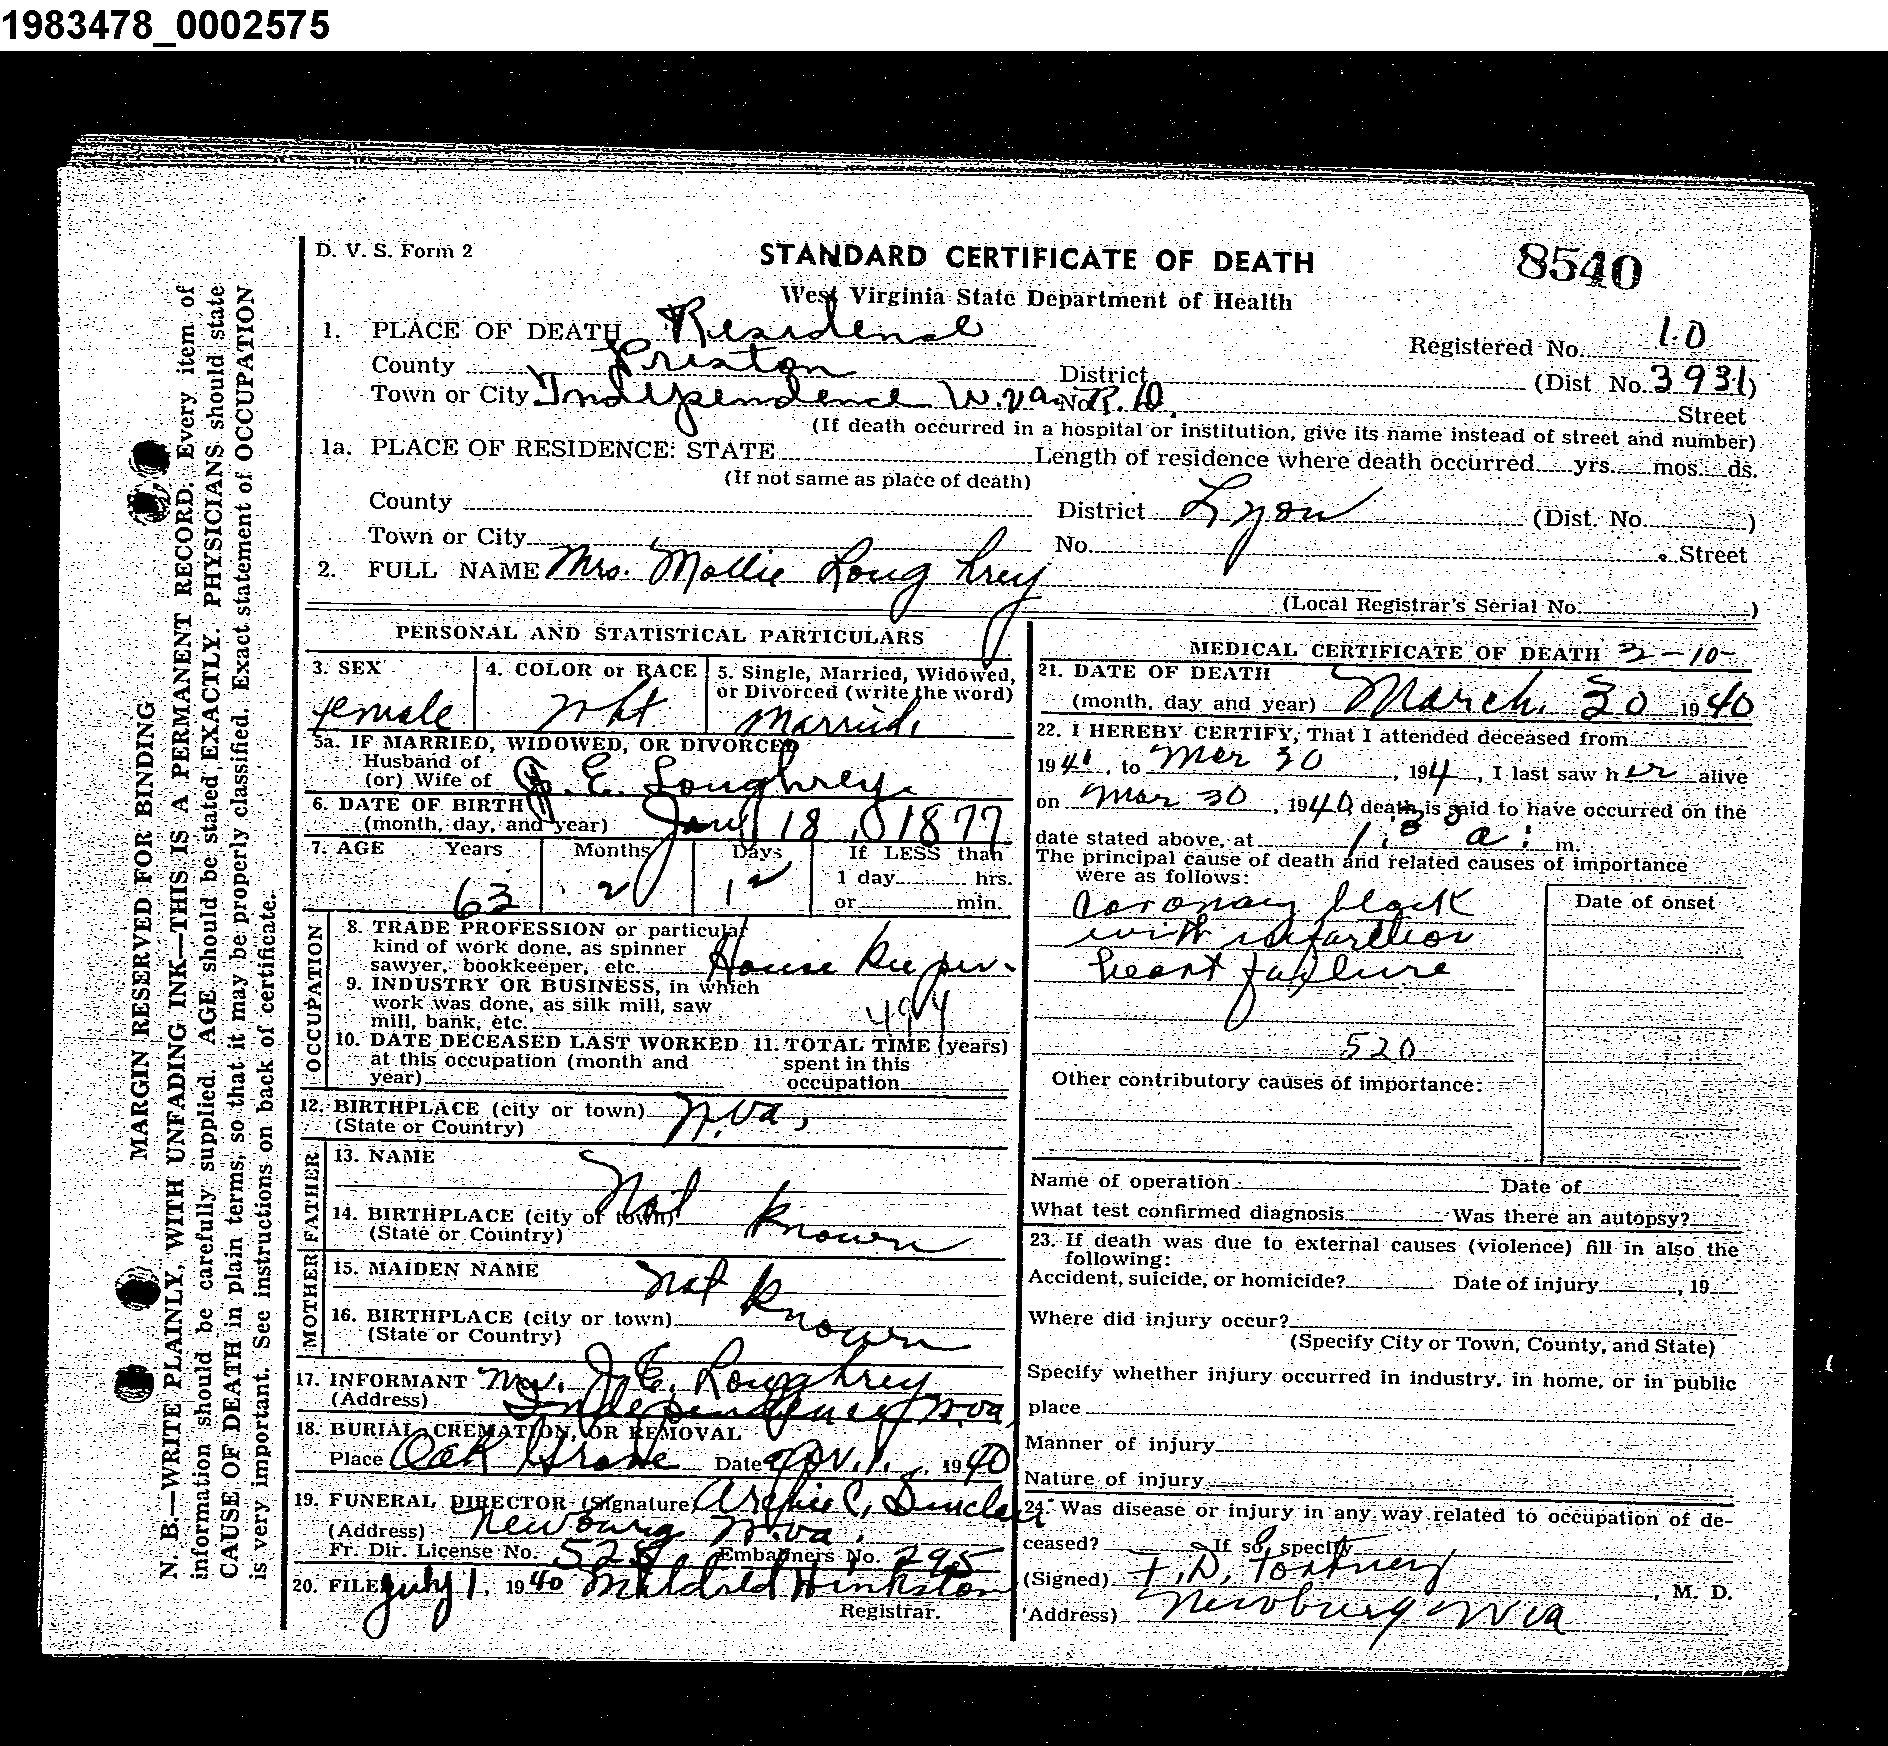 1983478_0002575
D. V. S. Form 2
STANDARD CERTIFICATE OF DEATH
8540
West Virginia State Department of Health
1. PLACE OF DEATH Residense
Registered No. 10
County Preston District (Dist. No. 3931)
Town or City Independence W.va. No. R.D. Street
(If death occurred in a hospital or institution, give its name instead of street and number)
1a. PLACE OF RESIDENCE: STATE Length of residence where death occurred yrs. mos. ds.
(If not same as place of death)
County District Lyon (Dist. No. )
Town or City No. Street
2. FULL NAME Mrs. Mollie Loughrey
(Local Registrar's Serial No. )
PERSONAL AND STATISTICAL PARTICULARS
3. SEX 4. COLOR or RACE 5. Single, Married, Widowed,
or Divorced (write the word)
female wht Married.
5a. IF MARRIED, WIDOWED, OR DIVORCED
Husband of
(or) Wife of J. E. Loughrey.
6. DATE OF BIRTH
(month, day, and year) Jan 18, 1877
7. AGE Years Months Days If LESS than
1 day hrs.
63 2 12 or min.
OCCUPATION
8. TRADE PROFESSION or particular
kind of work done, as spinner
sawyer, bookkeeper, etc. House Keeper.
9. INDUSTRY OR BUSINESS, in which
work was done, as silk mill, saw
mill, bank, etc.
10. DATE DECEASED LAST WORKED 11. TOTAL TIME (years)
at this occupation (month and spent in this
year) occupation
12. BIRTHPLACE (city or town) W.va,
(State or Country)
FATHER
13. NAME Not
14. BIRTHPLACE (city or town) Known
(State or Country)
MOTHER
15. MAIDEN NAME Not
16. BIRTHPLACE (city or town) Known
(State or Country)
17. INFORMANT Mr. J. E. Loughrey
(Address) Independence W.va,
18. BURIAL, CREMATION, OR REMOVAL
Place Oak Grove Date Apr. 1. 1940
19. FUNERAL DIRECTOR (Signature) Archie C. Sinclair
(Address) Newburg W.va.
Fr. Dir. License No. 528 Embalmers No. 295
20. FILED July 1, 1940 Mildred Hinkston
Registrar.
MEDICAL CERTIFICATE OF DEATH 3-10-
21. DATE OF DEATH
(month, day and year) March. 30 1940
22. I HEREBY CERTIFY, That I attended deceased from
194, to Mar 30, 194, I last saw her alive
on Mar 30, 1940, death is said to have occurred on the
date stated above, at 1:30 a. m.
The principal cause of death and related causes of importance
were as follows:
Date of onset
coronary block
with infarction
heart failure
520
Other contributory causes of importance:
Name of operation Date of
What test confirmed diagnosis Was there an autopsy?
23. If death was due to external causes (violence) fill in also the
following:
Accident, suicide, or homicide? Date of injury, 19
Where did injury occur?
(Specify City or Town, County, and State)
Specify whether injury occurred in industry, in home, or in public
place
Manner of injury
Nature of injury
24. Was disease or injury in any way related to occupation of de-
ceased? If so, specify
(Signed) F. D. Fortney, M. D.
(Address) Newburg W va
MARGIN RESERVED FOR BINDING
N. B.—WRITE PLAINLY, WITH UNFADING INK—THIS IS A PERMANENT RECORD. Every item of
information should be carefully supplied. AGE should be stated EXACTLY. PHYSICIANS should state
CAUSE OF DEATH in plain terms, so that it may be properly classified. Exact statement of OCCUPATION
is very important. See instructions on back of certificate.